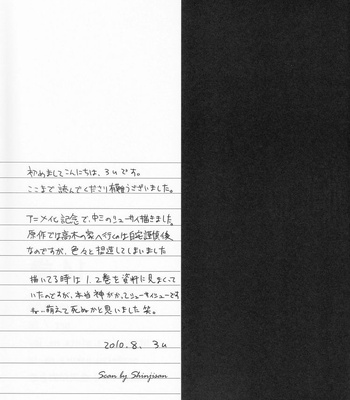 初めましてこんにちは、3uです。
ここまで読んでくださり有難うございました。
アニメ化記念で、中三のシューサイ描きました。
原作では高木の家へ行くのは自宅謹慎後
なのですが、色々と捏造してしまいました
描いてる時は1.2巻を資料に見まくって
いたのですが、本当神がかってシューサイシューです
ね…萌えて死ぬかと思いました笑。
2010.8. 3u
Scan by Shinjisan